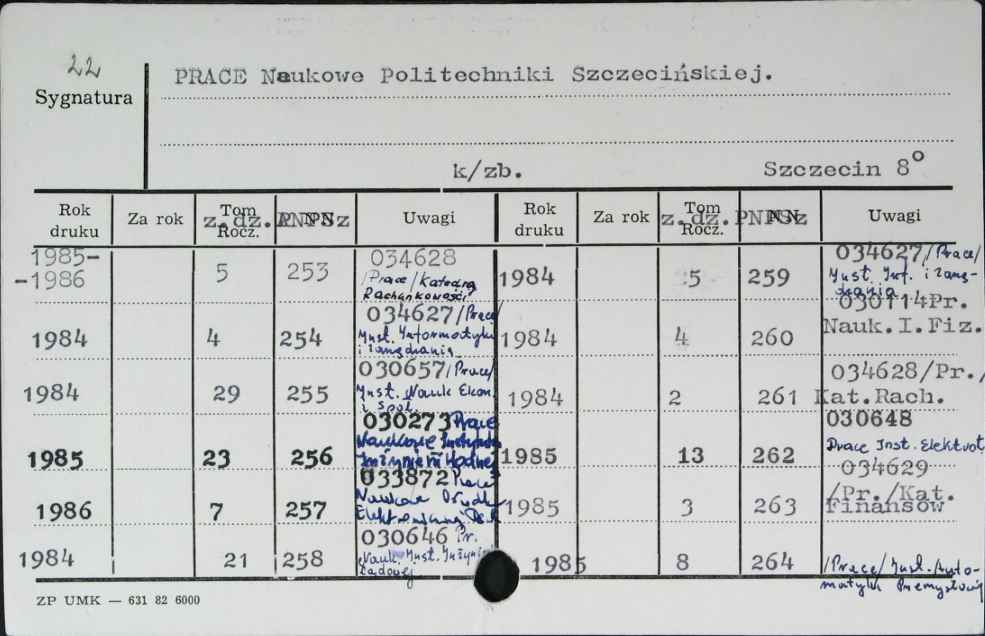 22
Sygnatura
PRACE Naukowe Politechniki Szczecińskiej.
k/zb. Szczecin 8°
Rok druku Za rok Tom Rocz. z.dz. PNPSz Uwagi Rok druku Za rok Tom Rocz. z.dz. PNPSz Uwagi
1985-
-1986 5 253 034628
/Prace/Katedra
Rachunkowości
1984 4 254 034627/Prace/
Inst. Informatyki
i zarządzania
1984 29 255 030657/Prace/
Inst. Nauk Ekon.
i Społ.
1985 23 256 030273 Prace
Naukowe Instytutu
Inżynierii Wodnej
1986 7 257 033872 Prace
Naukowe
1984 21 258 030646 Pr.
Nauk. Inst. Inżynierii
Lądowej
1984 5 259 034627/Prace/
Inst. Inf. i zarzą-
dzania
1984 4 260 030114Pr.
Nauk.I.Fiz.
1984 2 261 034628/Pr./
Kat.Rach.
1985 13 262 030648
Prace Inst. Elektrot.
1985 3 263 034629
/Pr./Kat.
Finansów
1985 8 264 /Prace/Inst./Auto-
matyki Przemysłowej
ZP UMK — 631 82 6000